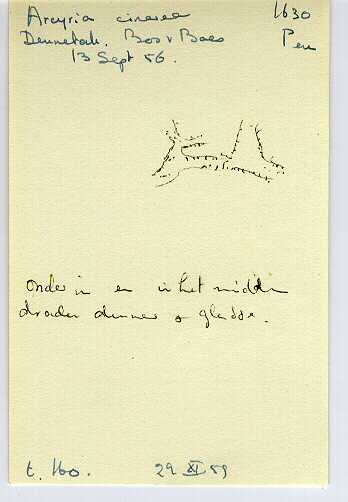 Arcyria cinerea 1630
Dennetak. Bos v Baes Peu
13 Sept 56.
Onder in en in het midden
draden dunner & gladde.
t. 160. 29 XI 59